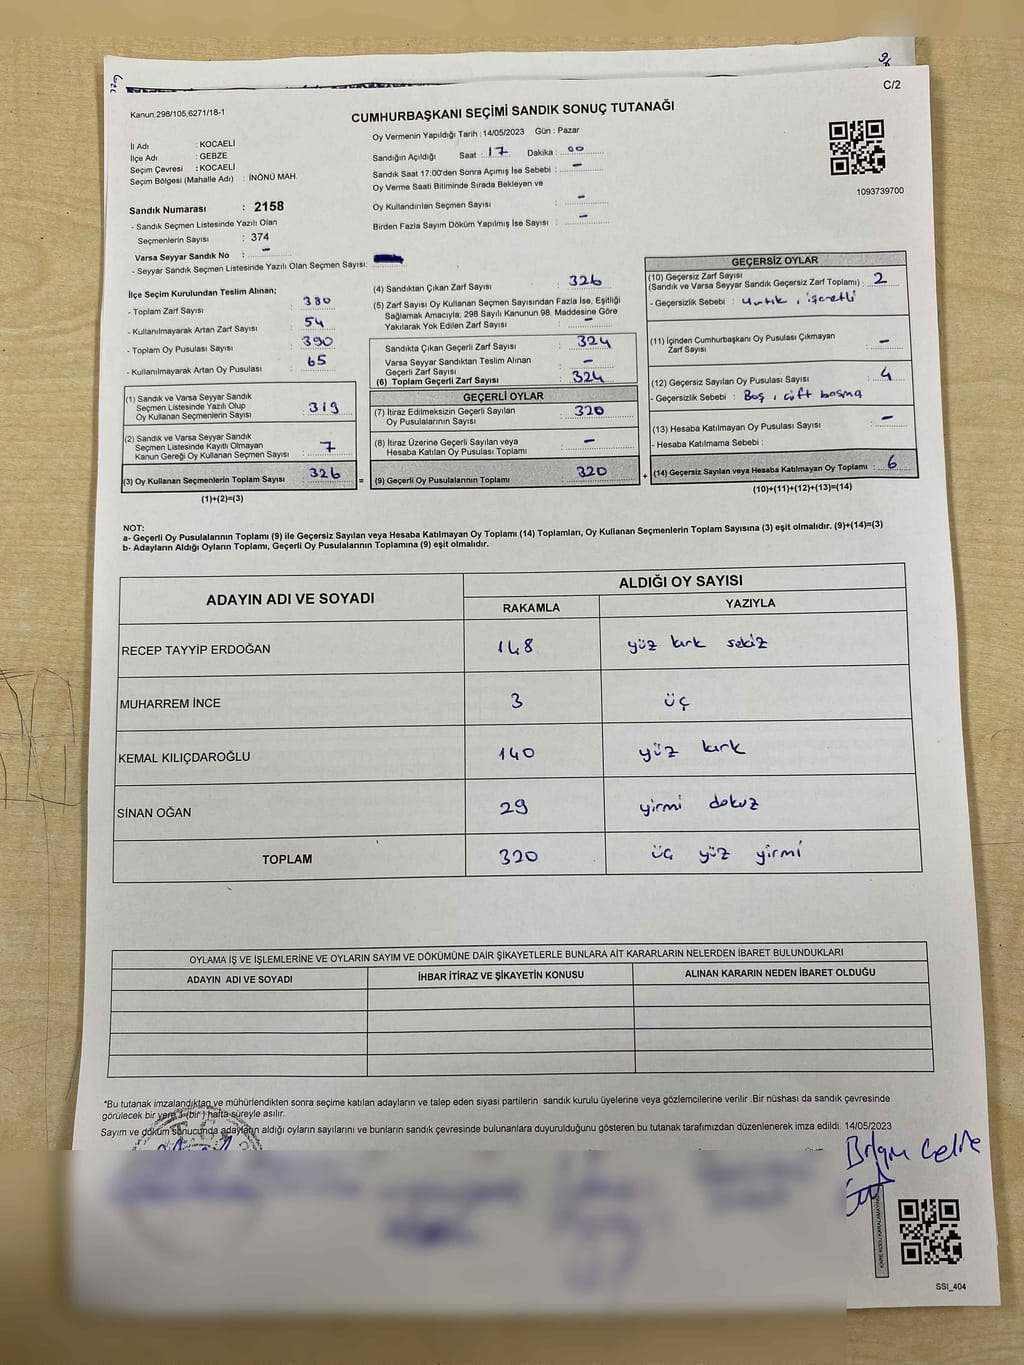 C/2
Kanun;298/105;6271/18-1
CUMHURBAŞKANI SEÇİMİ SANDIK SONUÇ TUTANAĞI
Oy Vermenin Yapıldığı Tarih : 14/05/2023 Gün : Pazar
İl Adı : KOCAELİ
İlçe Adı : GEBZE
Seçim Çevresi : KOCAELİ
Seçim Bölgesi (Mahalle Adı) : İNÖNÜ MAH.
Sandığın Açıldığı Saat : 17 Dakika : 00
Sandık Saat 17:00'den Sonra Açımış İse Sebebi : -
Oy Verme Saati Bitiminde Sırada Bekleyen ve
Oy Kullandırılan Seçmen Sayısı : -
Birden Fazla Sayım Döküm Yapılmış İse Sayısı : -
1093739700
Sandık Numarası : 2158
- Sandık Seçmen Listesinde Yazılı Olan
Seçmenlerin Sayısı : 374
Varsa Seyyar Sandık No : -
- Seyyar Sandık Seçmen Listesinde Yazılı Olan Seçmen Sayısı:
İlçe Seçim Kurulundan Teslim Alınan;
- Toplam Zarf Sayısı : 380
- Kullanılmayarak Artan Zarf Sayısı : 54
- Toplam Oy Pusulası Sayısı : 390
- Kullanılmayarak Artan Oy Pusulası : 65
(1) Sandık ve Varsa Seyyar Sandık
Seçmen Listesinde Yazılı Olup
Oy Kullanan Seçmenlerin Sayısı : 319
(2) Sandık ve Varsa Seyyar Sandık
Seçmen Listesinde Kayıtlı Olmayan
Kanun Gereği Oy Kullanan Seçmen Sayısı : 7
(3) Oy Kullanan Seçmenlerin Toplam Sayısı : 326
(1)+(2)=(3)
(4) Sandıktan Çıkan Zarf Sayısı : 326
(5) Zarf Sayısı Oy Kullanan Seçmen Sayısından Fazla İse, Eşitliği
Sağlamak Amacıyla; 298 Sayılı Kanunun 98. Maddesine Göre
Yakılarak Yok Edilen Zarf Sayısı : -
Sandıkta Çıkan Geçerli Zarf Sayısı : 324
Varsa Seyyar Sandıktan Teslim Alınan
Geçerli Zarf Sayısı : -
(6) Toplam Geçerli Zarf Sayısı : 324
GEÇERLİ OYLAR
(7) İtiraz Edilmeksizin Geçerli Sayılan
Oy Pusulalarının Sayısı : 320
(8) İtiraz Üzerine Geçerli Sayılan veya
Hesaba Katılan Oy Pusulası Toplamı : -
= (9) Geçerli Oy Pusulalarının Toplamı : 320
GEÇERSİZ OYLAR
(10) Geçersiz Zarf Sayısı
(Sandık ve Varsa Seyyar Sandık Geçersiz Zarf Toplamı) : 2
- Geçersizlik Sebebi : yırtık, işaretli
(11) İçinden Cumhurbaşkanı Oy Pusulası Çıkmayan
Zarf Sayısı : -
(12) Geçersiz Sayılan Oy Pusulası Sayısı : 4
- Geçersizlik Sebebi : Boş, çift basma
(13) Hesaba Katılmayan Oy Pusulası Sayısı : -
- Hesaba Katılmama Sebebi :
+ (14) Geçersiz Sayılan veya Hesaba Katılmayan Oy Toplamı : 6
(10)+(11)+(12)+(13)=(14)
NOT:
a- Geçerli Oy Pusulalarının Toplamı (9) ile Geçersiz Sayılan veya Hesaba Katılmayan Oy Toplamı (14) Toplamları, Oy Kullanan Seçmenlerin Toplam Sayısına (3) eşit olmalıdır. (9)+(14)=(3)
b- Adayların Aldığı Oyların Toplamı, Geçerli Oy Pusulalarının Toplamına (9) eşit olmalıdır.
ADAYIN ADI VE SOYADI
ALDIĞI OY SAYISI
RAKAMLA YAZIYLA
RECEP TAYYİP ERDOĞAN 148 yüz kırk sekiz
MUHARREM İNCE 3 üç
KEMAL KILIÇDAROĞLU 140 yüz kırk
SİNAN OĞAN 29 yirmi dokuz
TOPLAM 320 üç yüz yirmi
OYLAMA İŞ VE İŞLEMLERİNE VE OYLARIN SAYIM VE DÖKÜMÜNE DAİR ŞİKAYETLERLE BUNLARA AİT KARARLARIN NELERDEN İBARET BULUNDUKLARI
ADAYIN ADI VE SOYADI İHBAR İTİRAZ VE ŞİKAYETİN KONUSU ALINAN KARARIN NEDEN İBARET OLDUĞU
*Bu tutanak imzalandıktan ve mühürlendikten sonra seçime katılan adayların ve talep eden siyasi partilerin sandık kurulu üyelerine veya gözlemcilerine verilir .Bir nüshası da sandık çevresinde
görülecek bir yere 1 (bir ) hafta süreyle asılır.
Sayım ve döküm sonucunda adayların aldığı oyların sayılarını ve bunların sandık çevresinde bulunanlara duyurulduğunu gösteren bu tutanak tarafımızdan düzenlenerek imza edildi. 14/05/2023
SSI_404